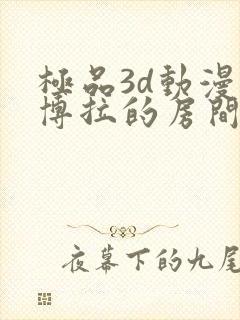 極品3d動漫
博拉的居間
夜幕下的九尾